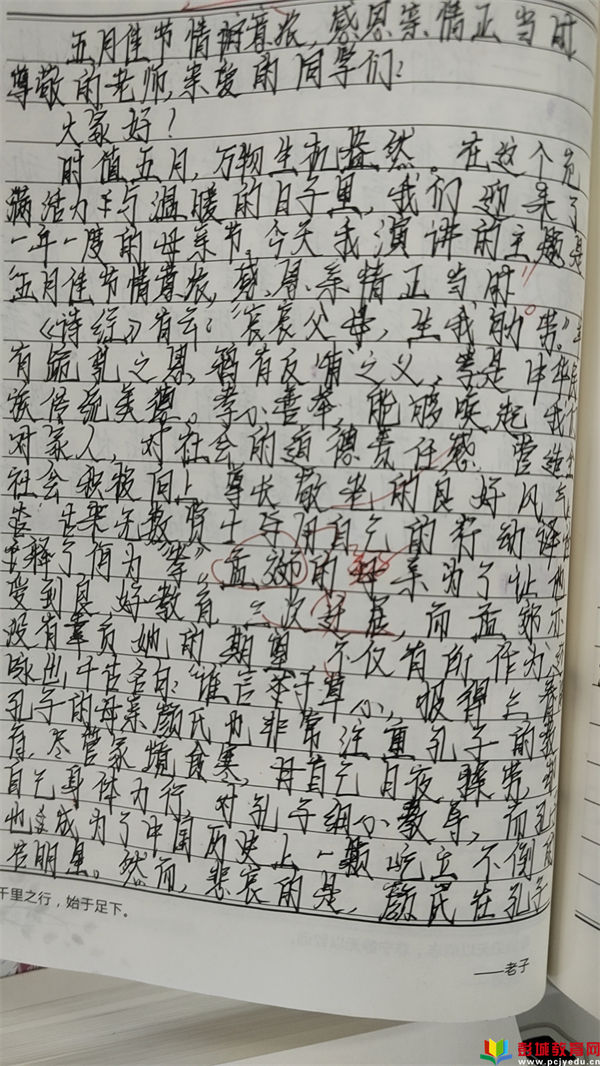 五月佳节情谢意浓,感恩亲情正当时
尊敬的老师,亲爱的同学们:
大家好!
时值五月,万物生机盎然。在这个充
满活力与温暖的日子里,我们迎来了
一年一度的母亲节,今天我演讲的主题是
“五月佳节情意浓,感恩亲情正当时”。
《诗经》有云:“哀哀父母,生我劬劳。”羊
有 乳之恩,鸦有反哺之义,孝是中华民
族传统美德。孝心善举,能够唤起我们
对家人,对社会的道德责任感,营造全
社会积极向上,尊长敬老的良好风气
古来无数贤士 用自己的行动诠
释了何为“孝”孟郊的母亲为了让他
受到良好教育,三次迁居,而孟郊亦
没有辜负她的期望,不仅有所作为,还
咏出千古名句:“谁言寸草心,报得三春
孔子的母亲颜氏也非常注重孔子的教
育,尽管家境贫寒,母自己日夜操劳,
自己身体力行,对孔子细心教导,而孔子
也 成为了中国历史上一颗屹立不倒的
启明星。然而,悲哀的是,颜氏在孔子
千里之行,始于足下。
——老子
彭城教育网
www.pcjyedu.cn